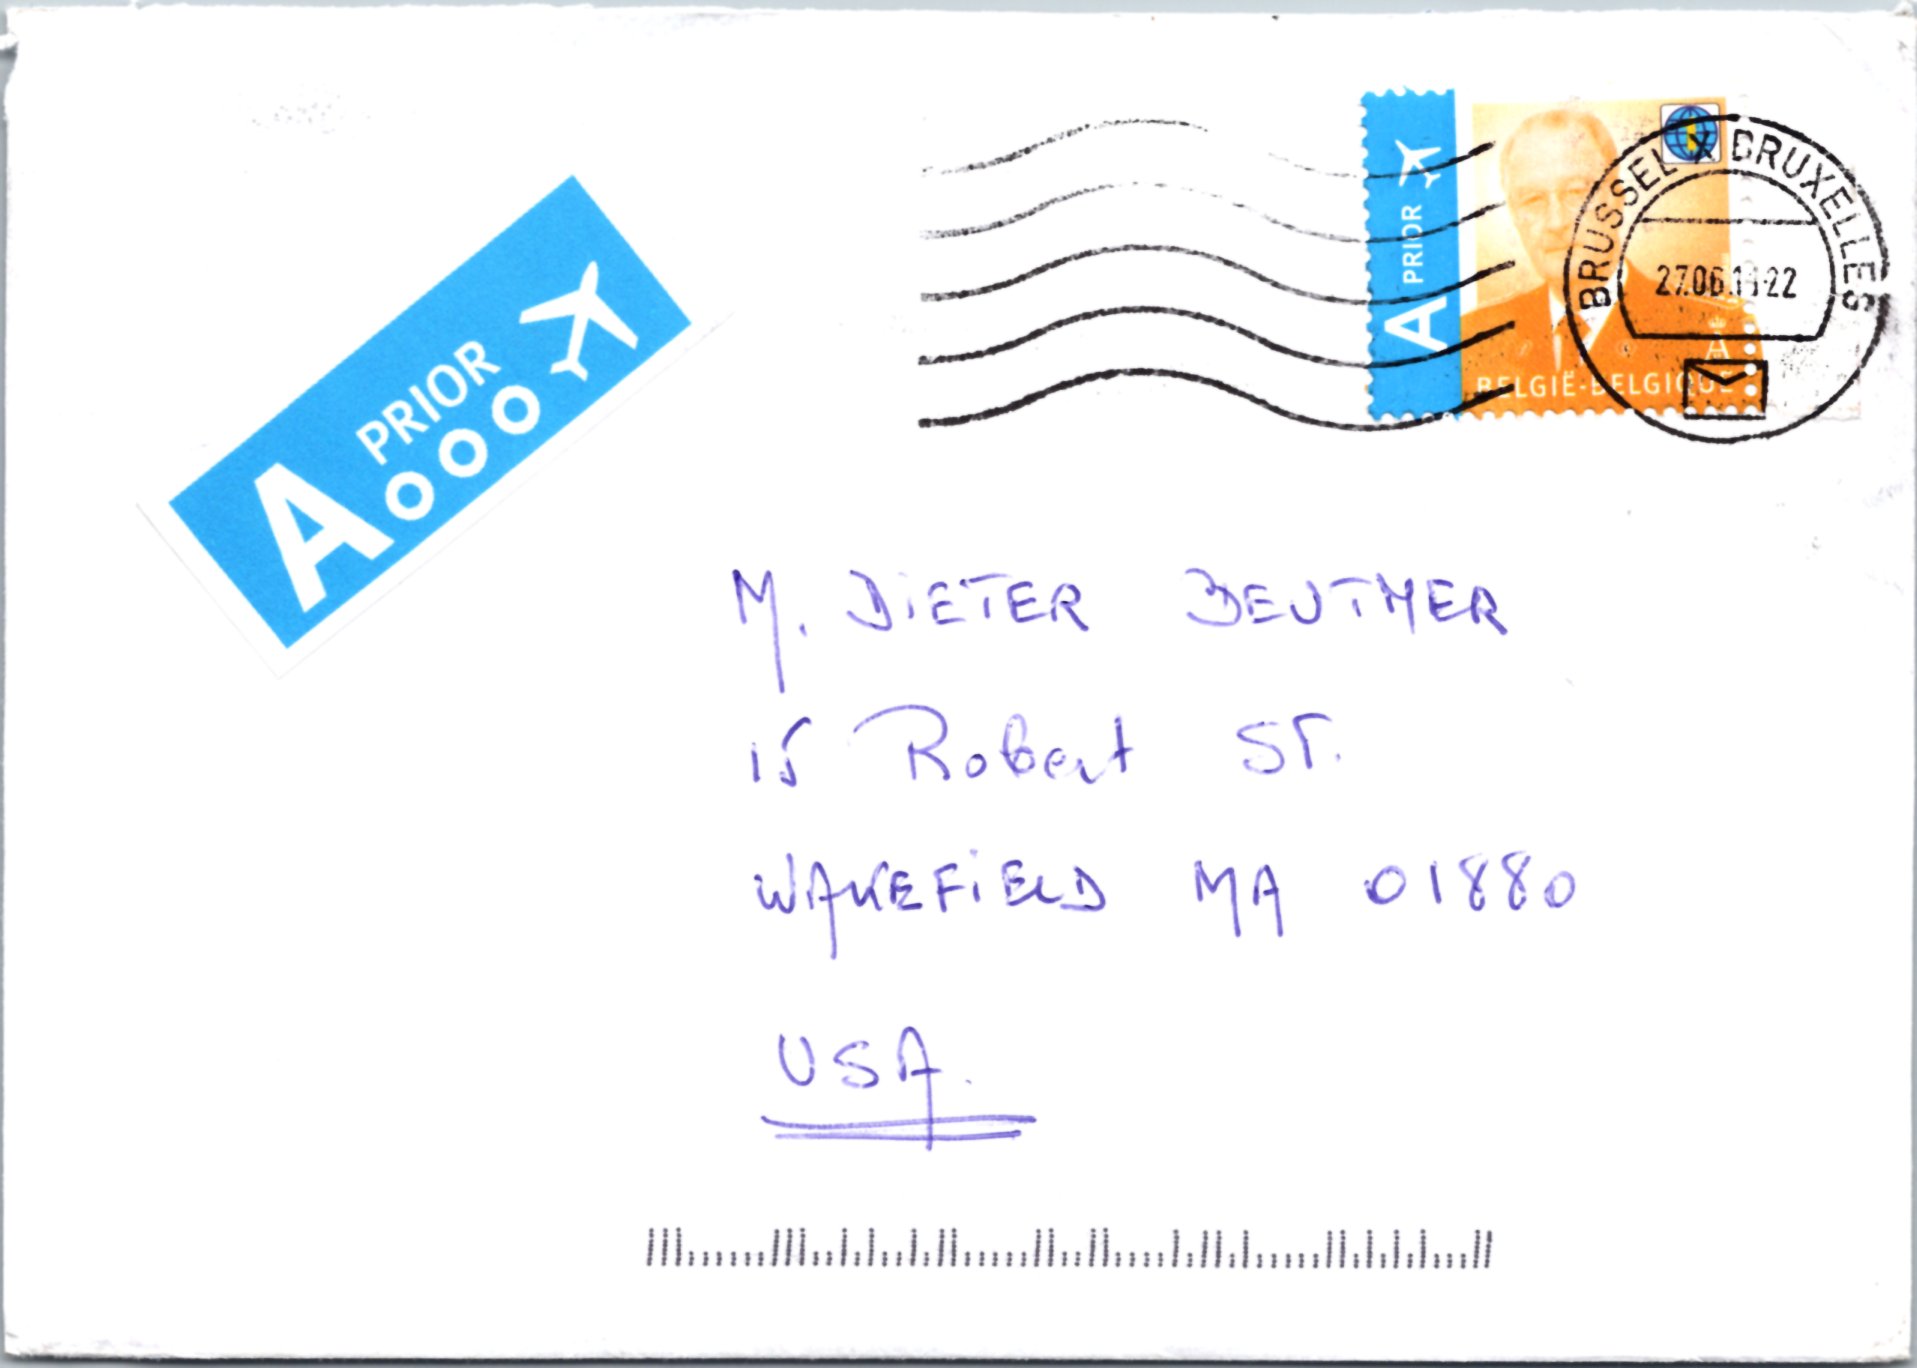 A PRIOR
A PRIOR
BELGIË-BELGIQUE
BRUSSEL X BRUXELLES
27.06.11-22
M. DIETER BEUTHER
15 Robert ST.
WAKEFIELD MA 01880
USA.